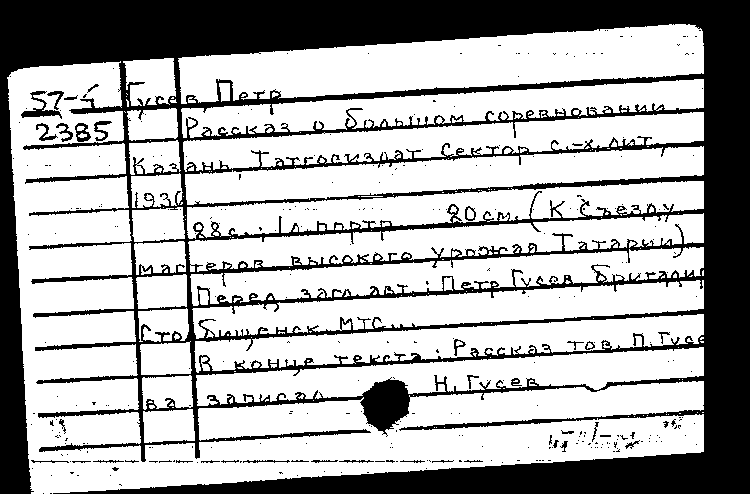 57-4 Гусев, Петр
2385 Рассказ о большом соревновании.
Казань, Татгосиздат Сектор с.-х. лит.,
193
88с.; 1л. портр 20см. (К съезду
мастеров высокого урожая Татарии)
Перед загл. авт.: Петр Гусев, бригадир
Столбищенск. МТС...
В конце текста: Рассказ тов. П. Гусе
ва записал Н. Гусев.